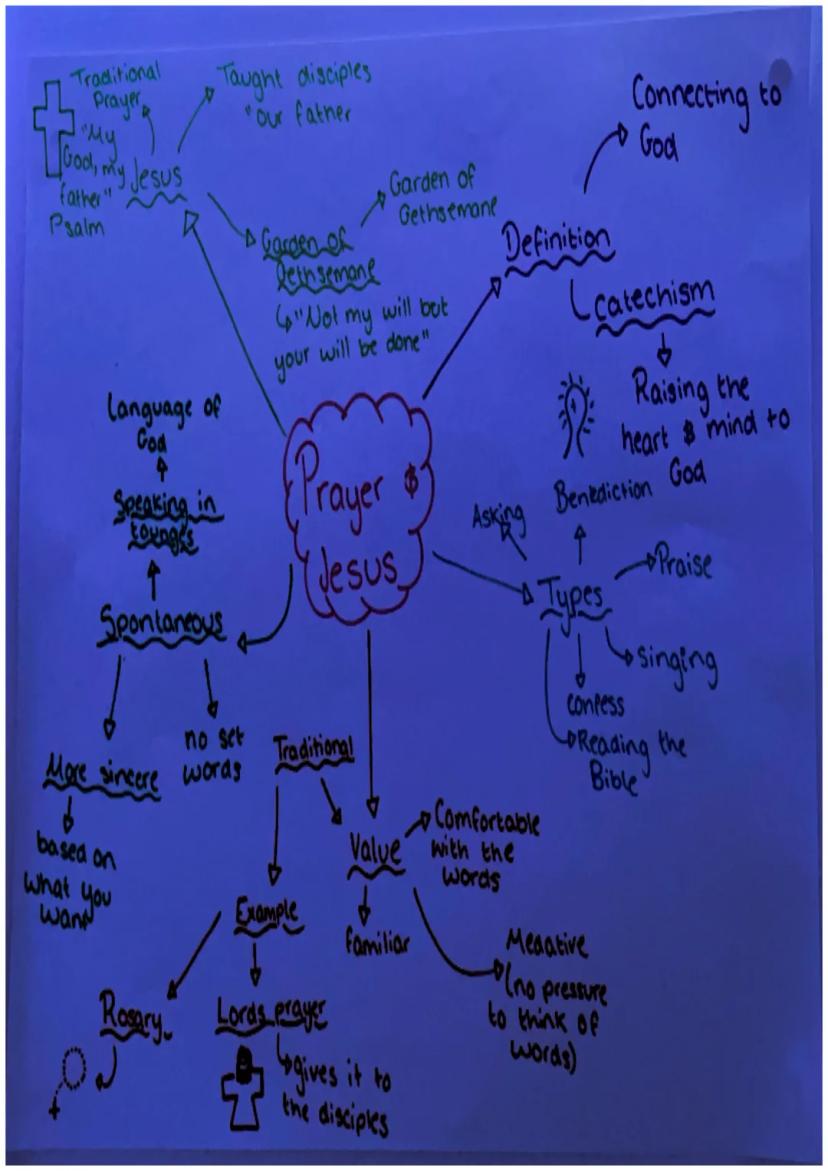 Prayer &
Jesus
Jesus
Traditional
Prayer
"My
God, my
father"
Psalm
Taught disciples
"our father
Garden of
Gethsemane
Garden of
Gethsemane
"Not my will but
your will be done"
Definition
Connecting to
God
Catechism
Raising the
heart & mind to
God
Types
Asking
Benediction
Praise
singing
confess
Reading the
Bible
Traditional
Value
Comfortable
with the
words
familiar
Medative
(no pressure
to think of
words)
Example
Rosary
Lords prayer
gives it to
the disciples
Spontaneous
Speaking in
tounges
Language of
God
More sincere
based on
what you
want
no set
words